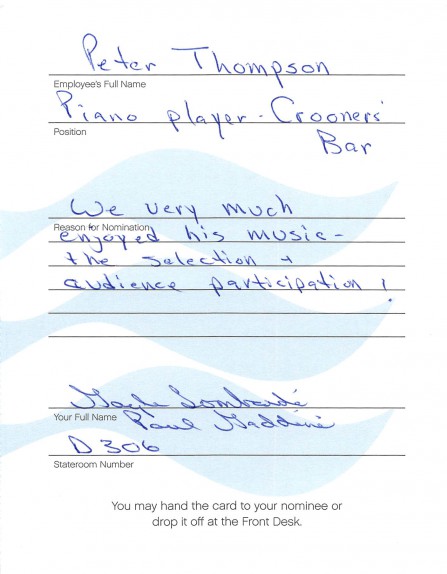 Peter Thompson
Employee's Full Name
Piano player - Crooners'
Position
Bar
We very much
Reason for Nomination
enjoyed his music -
the selection +
audience participation !
Gayle Lombardi
Your Full Name
Paul Gaddini
D 306
Stateroom Number
You may hand the card to your nominee or
drop it off at the Front Desk.